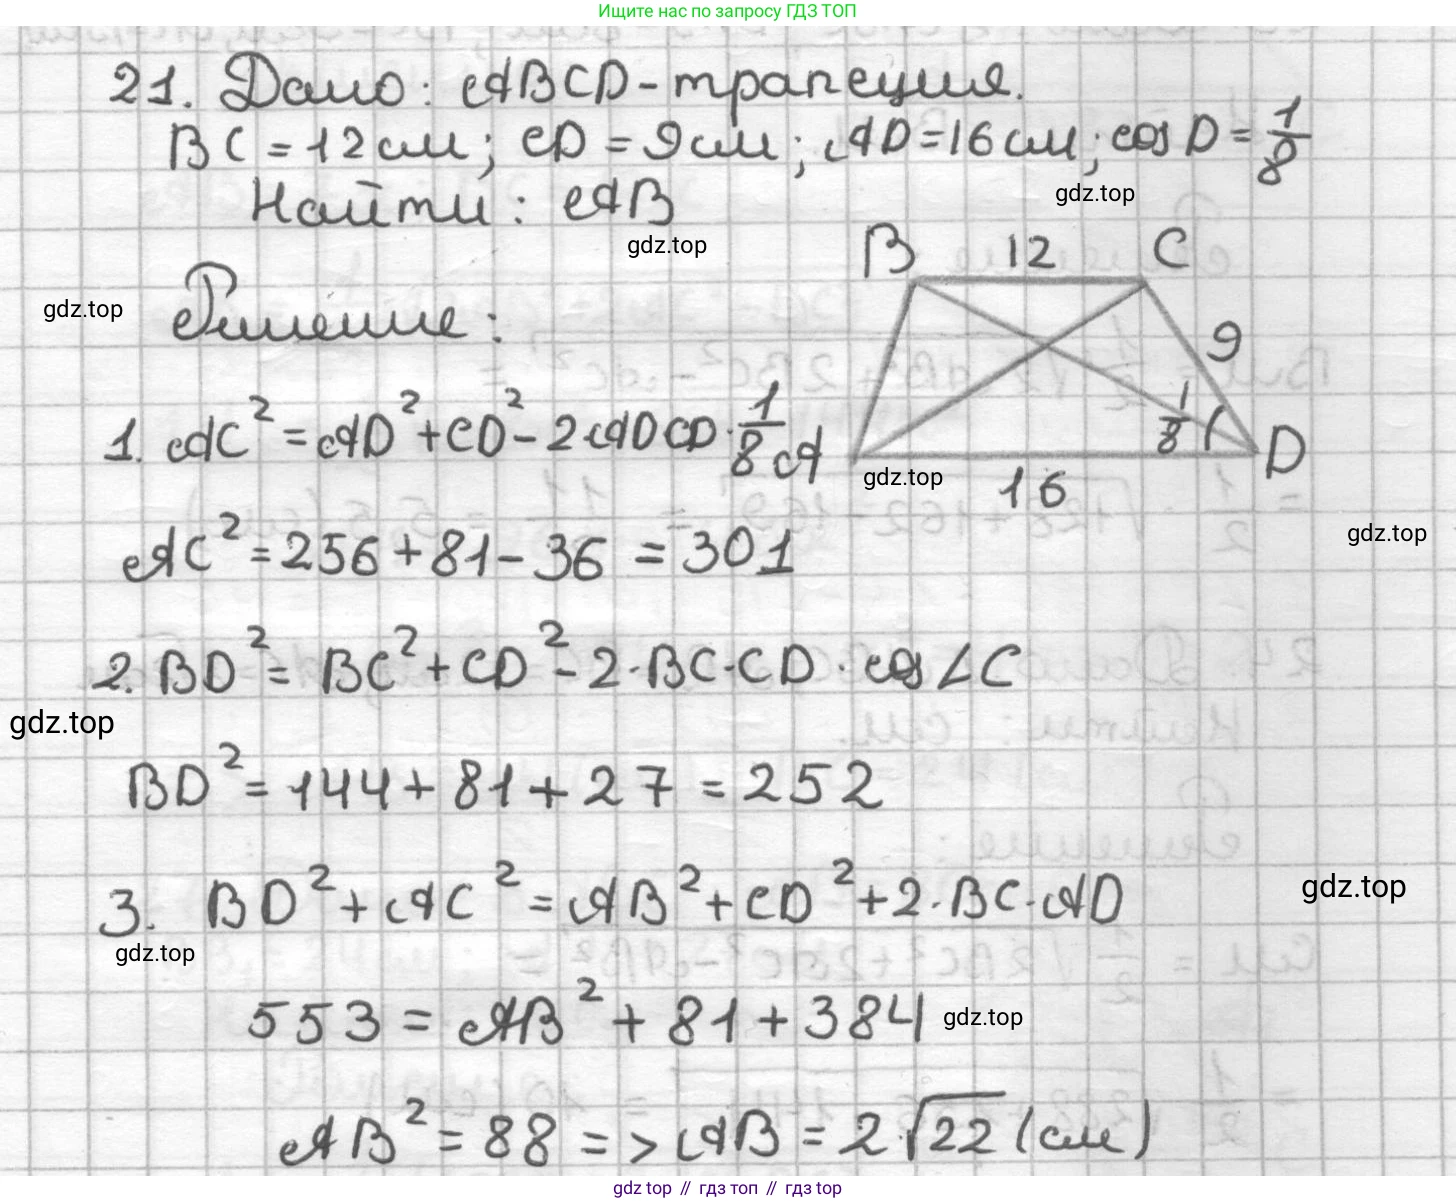 Ищите нас по запросу ГДЗ ТОП
21. Дано: ABCD - трапеция.
BC = 12 см; CD = 9 см; AD = 16 см; cos D = 1/8
gdz.top
Найти: AB
gdz.top
B 12 C
gdz.top
Решение:
9
1. AC² = AD² + CD² - 2 AD CD · 1/8
1/8
A
D
gdz.top
16
gdz.top
AC² = 256 + 81 - 36 = 301
2. BD² = BC² + CD² - 2 · BC · CD · cos ∠C
gdz.top
BD² = 144 + 81 + 27 = 252
3. BD² + AC² = AB² + CD² + 2 · BC · AD
gdz.top
gdz.top
553 = AB² + 81 + 384
gdz.top
AB² = 88 => AB = 2√22 (см)
gdz top // гдз топ // gdz top